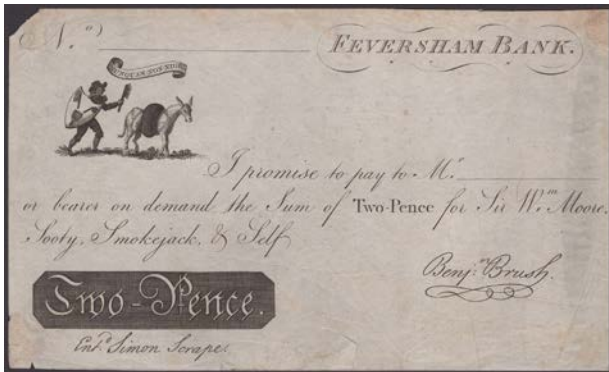 N.o)
FEVERSHAM BANK.
I promise to pay to Mr.
or bearer on demand the Sum of Two-Pence for Sir Wm. Moore,
Sooty, Smokejack, & Self
Benjn. Brush.
Two-Pence.
Entd. Simon Scrape.